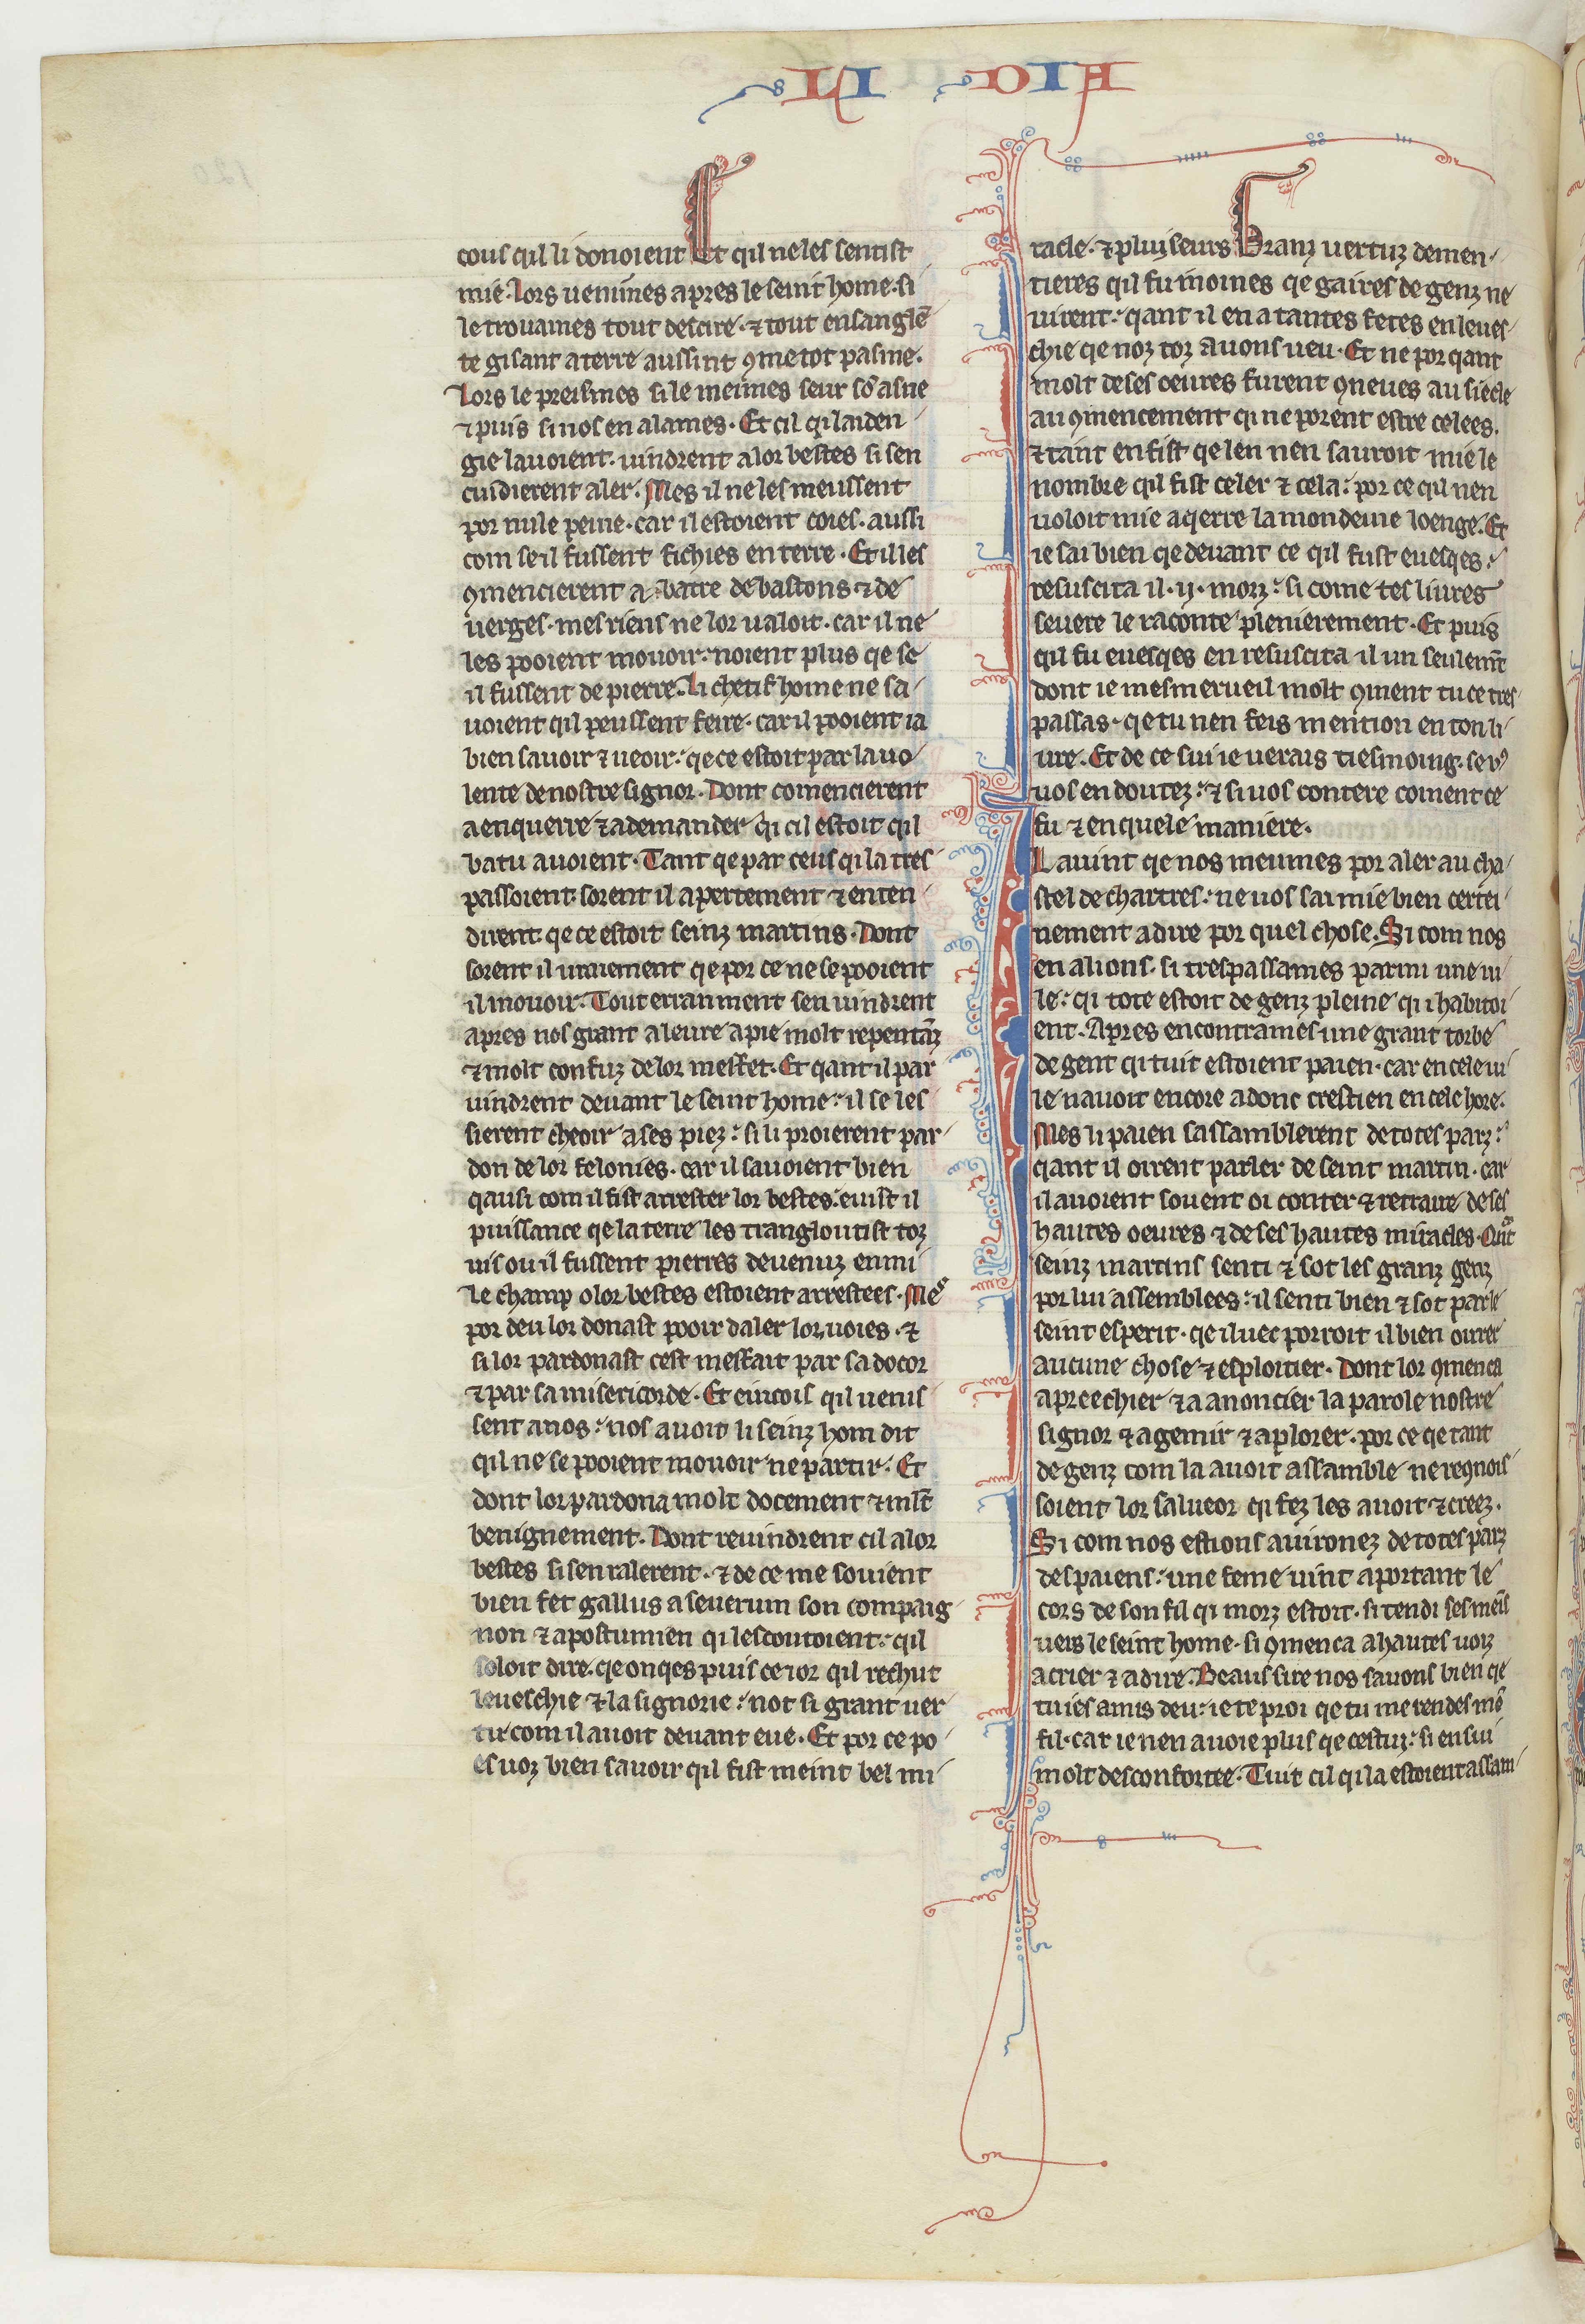 LI FEIC
cous qil li donoient Et qil ne les sentist
mie. Lors uenimes apres le seint home. si
le trouames tout descire. ⁊ tout ensanglē
te gisant a terre aussint ꝯme tot pasme.
Lors le preismes si le meimes seur sō asne
⁊ puis si nos en alames. Et cil qi laiden
gie lauoient. uindrent a lor bestes si sen
cuidierent aler. Mes il ne les meussent
por nule peine. car il estoient coies. aussi
com se il fussent fichies en terre. Et il les
ꝯmencierent a batre de bastons ⁊ de
uerges. mes riens ne lor ualoit. car il ne
les pooient mouoir. noient plus qe se
il fussent de pierre. Li chetif home ne sa
uoient qil peussent feire. car il pooient ia
bien sauoir ⁊ ueoir. qe ce estoit par la uo
lente de nostre signor. Dont comencierent
a enquerre ⁊ a demander qi cil estoit qil
batu auoient. Tant qe par ceus qi la tres
passoient. sorent il apertement ⁊ enten
dirent. qe ce estoit seinz martins. Dont
sorent il uraiement qe por ce ne se pooient
il mouoir. Tout erranment sen uindrent
apres nos grant aleure a pie molt repentāz
⁊ molt confuz de lor mesfet. Et qant il par
uindrent deuant le seint home. il se les
sierent cheoir a ses piez. si li proierent par
don de lor felonies. car il sauoient bien
qausi com il fist arrester lor bestes. euist il
puissance qe la terre les trangloutist toz
uis ou il fussent pierres deuenuz enmi
le champ o lor bestes estoient arrestees. Mes
por deu lor donast pooir daler lor uoies. ⁊
si lor pardonast cest mesfait par sa docor
⁊ par sa misericorde. Et eincois qil uenis
sent a nos. nos auoit li seinz hom dit
qil ne se pooient mouoir ne partir. Et
dont lor pardona molt docement ⁊ mlt̄
benignement. Dont reuindrent cil a lor
bestes si sen ralerent. ⁊ de ce me souient
bien fet gallus a seuerum son compaig
non ⁊ a postumien qi lescoutoient. qil
soloit dire. qe onqes puis ce ior qil rechut
leueschie ⁊ la signorie. not si grant uer
tu com il auoit deuant eue. Et por ce po
es uoz bien sauoir qil fist meint bel mi
racle. ⁊ pluiseurs Granz uertuz demen
tieres qil fu moines qe gaires de genz ne
uirent. qant il en a tantes fetes en leues
chie qe noz toz auons ueu. Et ne por qant
molt de ses oeures furent ꝯneues au siecle
au ꝯmencement qi ne porent estre celees.
⁊ tant en fist qe len nen sauroit mie le
nombre qil fist celer ⁊ cela. por ce qil nen
uoloit mie aqerre la mondeine loenge. Et
ie sai bien qe deuant ce qil fust euesqes.
resuscita il .ij. morz. si come tes liures
seuere le raconte plenierement. Et puis
qil fu euesqes en resuscita il un seulemt̄
dont ie mesmerueil molt ꝯment tu ce tres
passas. qe tu nen feis mention en ton li
ure. Et de ce sui ie uerais tiesmoing. se uꝰ
uos en doutez. ⁊ si uos contere coment ce
fu ⁊ en quele maniere.
IL auint qe nos meumes por aler au cha
stel de chartres. ne uos sai mie bien certei
nement a dire por quel chose. Si com nos
en alions. si trespassames parmi une ui
le. qi tote estoit de genz pleine qi i habitoi
ent. Apres encontrames une grant torbe
de gent qi tuit estoient paien. car en cele ui
le nauoit encore adonc crestien en cele hore.
Mes li paien sassamblerent de totes parz.
qant il oirent parler de seint martin. car
il auoient souent oi conter ⁊ retraire de ses
hautes oeures ⁊ de ses hautes miracles. Qant
seinz martins senti ⁊ sot les granz genz
por lui assemblees. il senti bien ⁊ sot par le
seint esperit. qe iluec porroit il bien ourer
aucune chose ⁊ esploitier. Dont lor ꝯmenca
a preechier ⁊ a anoncier la parole nostre
signor ⁊ a gemir ⁊ a plorer. por ce qe tant
de genz com la auoit assamble ne reqnois
soient lor salueor qi fez les auoit ⁊ creez.
Si com nos estions auironez de totes parz
des paiens. une feme uint aportant le
cors de son fil qi morz estoit. si tendi ses meīs
uers le seint home. si ꝯmenca a hautes uoiz
a crier ⁊ a dire. Beaus sire nos sauons bien qe
tu ies amis deu. ie te proi qe tu me rendes mē
fil. car ie nen auoie plus qe cestui. si en sui
molt desconfortee. Tuit cil qi la estoient assam